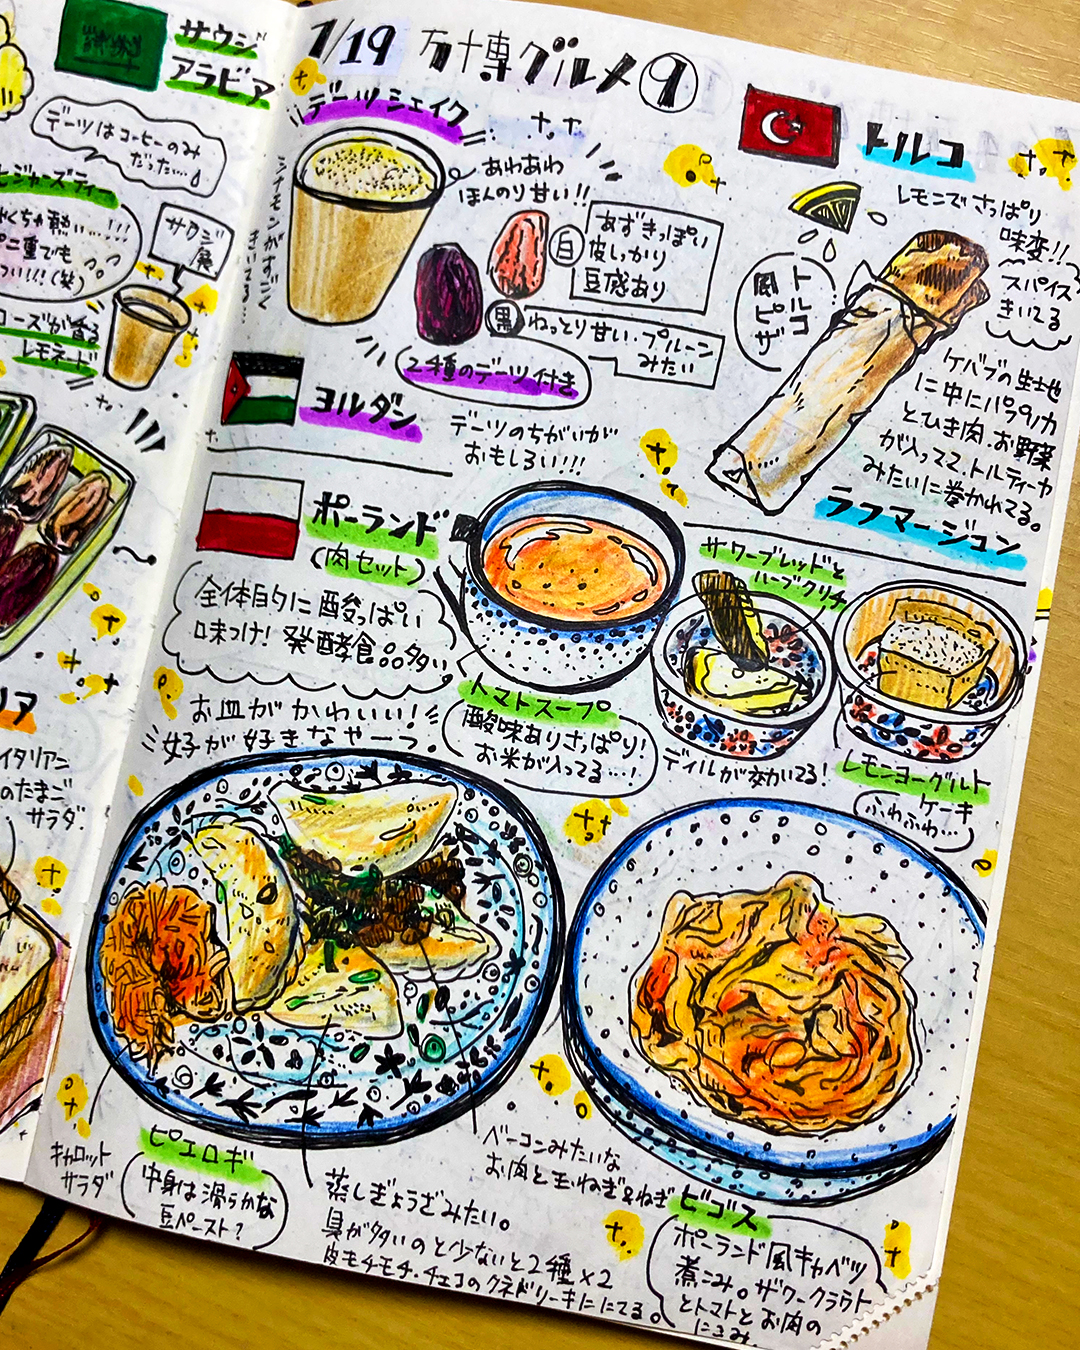 サウジ
アラビア
デーツはコーヒーのみ
だった…
ジャーズティー
くちゃ熱い…!!!
二重でも
つい!!!(笑)
サウジ
展
ローズが香る
レモネード
リア
イタリアン
のたまご
サラダ.
7/19 万博グルメ⑨
デーツシェイク
シナモンがすごく
きいてる…
あわあわ
ほんのり甘い!!
白
あずきっぽい
皮しっかり
豆感あり
黒
ねっとり甘い・プルーン
みたい
2種のデーツ付き
ヨルダン
デーツのちがいが
おもしろい!!!
トルコ
レモンでさっぱり
味変!!
スパイス
きいてる
トルコ
風ピザ
ケバブの生地
に中にパプリカ
とひき肉・お野菜
が入ってて、トルティーヤ
みたいに巻かれてる。
ラフマージュン
ポーランド
(肉セット)
全体的に酸っぱい
味つけ!発酵食品多い
お皿がかわいい!
好が好きなやーつ!
トマトスープ
酸味ありさっぱり!
お米が入ってる…!
サワーブレッドと
ハーブクリチ
ディルが効いてる!
レモンヨーグルト
ケーキ
ふわふわ…
キャロット
サラダ
ピエロギ
中身は滑らかな
豆ペースト?
蒸しぎょうざみたい。
具が多いのと少ないと2種×2
皮モチモチ・チェコのクネドリーキににてる。
ベーコンみたいな
お肉と玉ねぎ&ねぎ
ビゴス
ポーランド風キャベツ
煮こみ。ザワークラウト
とトマトとお肉の
にこみ.